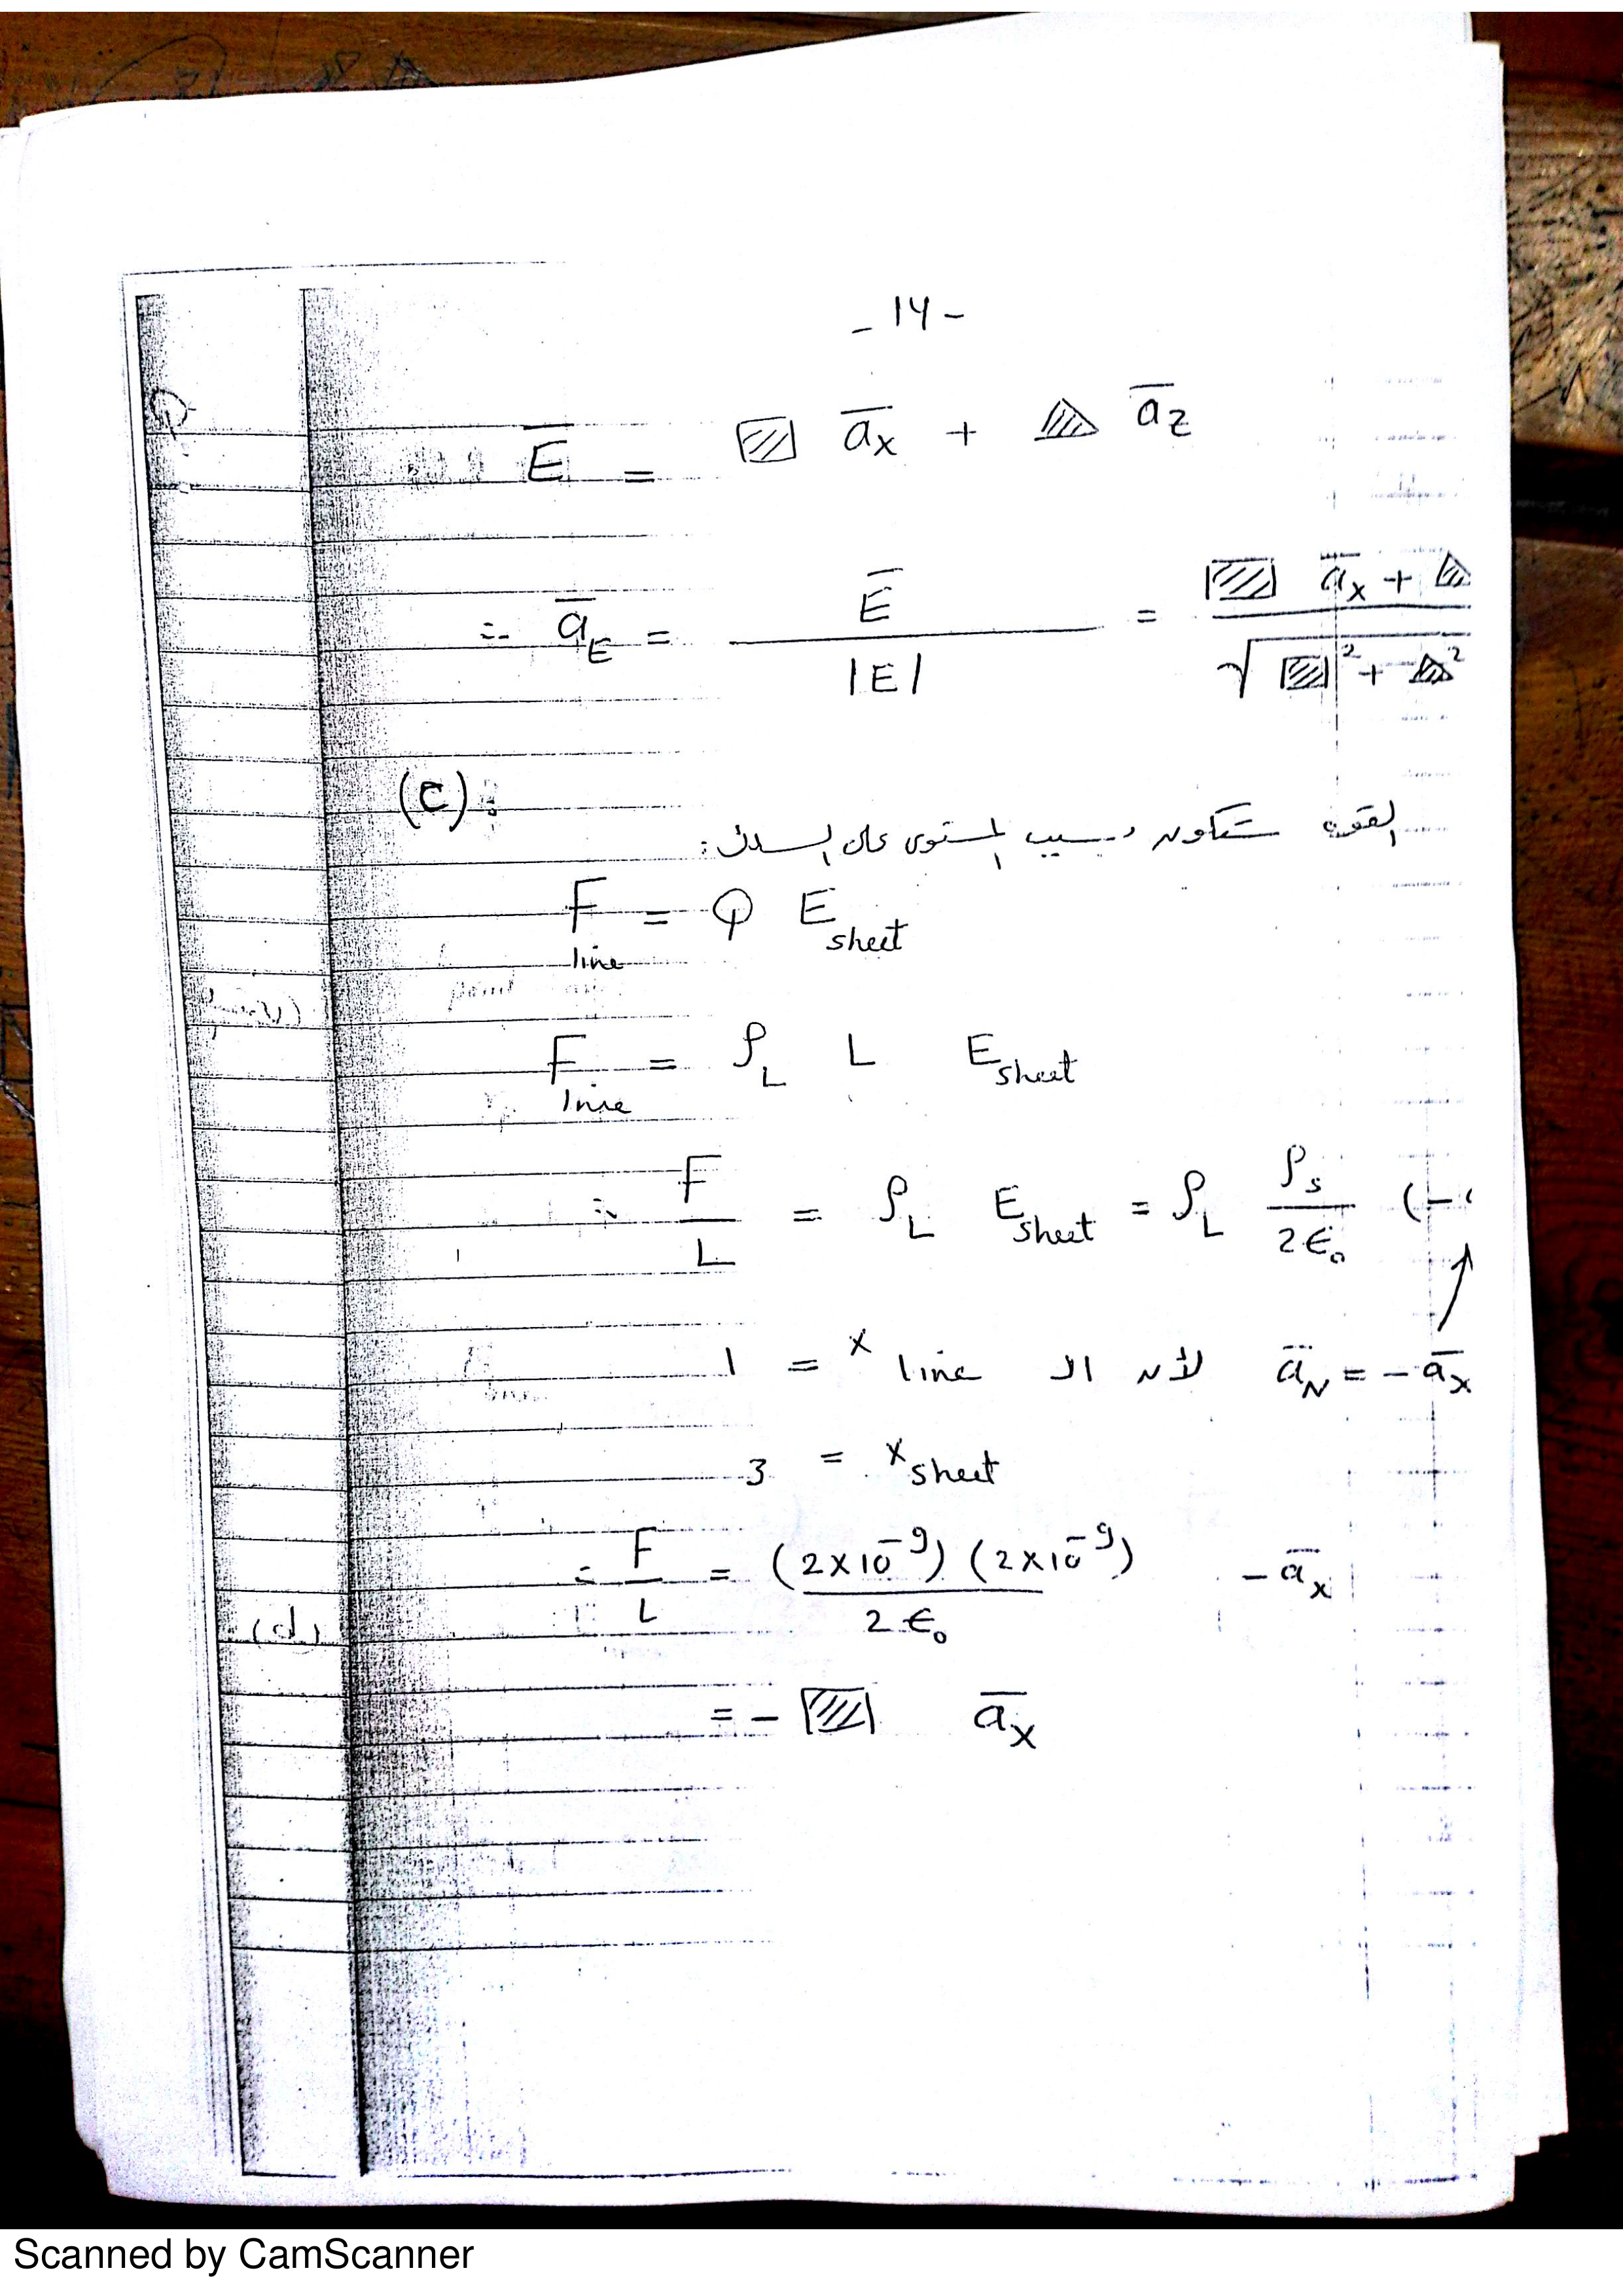 - 14 -
E̅ = ▨ a̅x + △ a̅z
∴ a̅E = E̅ / |E| = ▨ a̅x + △ / √ ▨² + △²
(C):
القوه ستكون بسبب المستوى على السلك:
F line = Q E sheet
F line = ρL L E sheet
∴ F / L = ρL E sheet = ρL ρs / 2ϵ₀ (-
1 = x line لأن الـ a̅N = - a̅x
3 = x sheet
∴ F / L = (2×10⁻⁹) (2×10⁻⁹) / 2ϵ₀ - a̅x
(d)
= - ▨ a̅x
Scanned by CamScanner